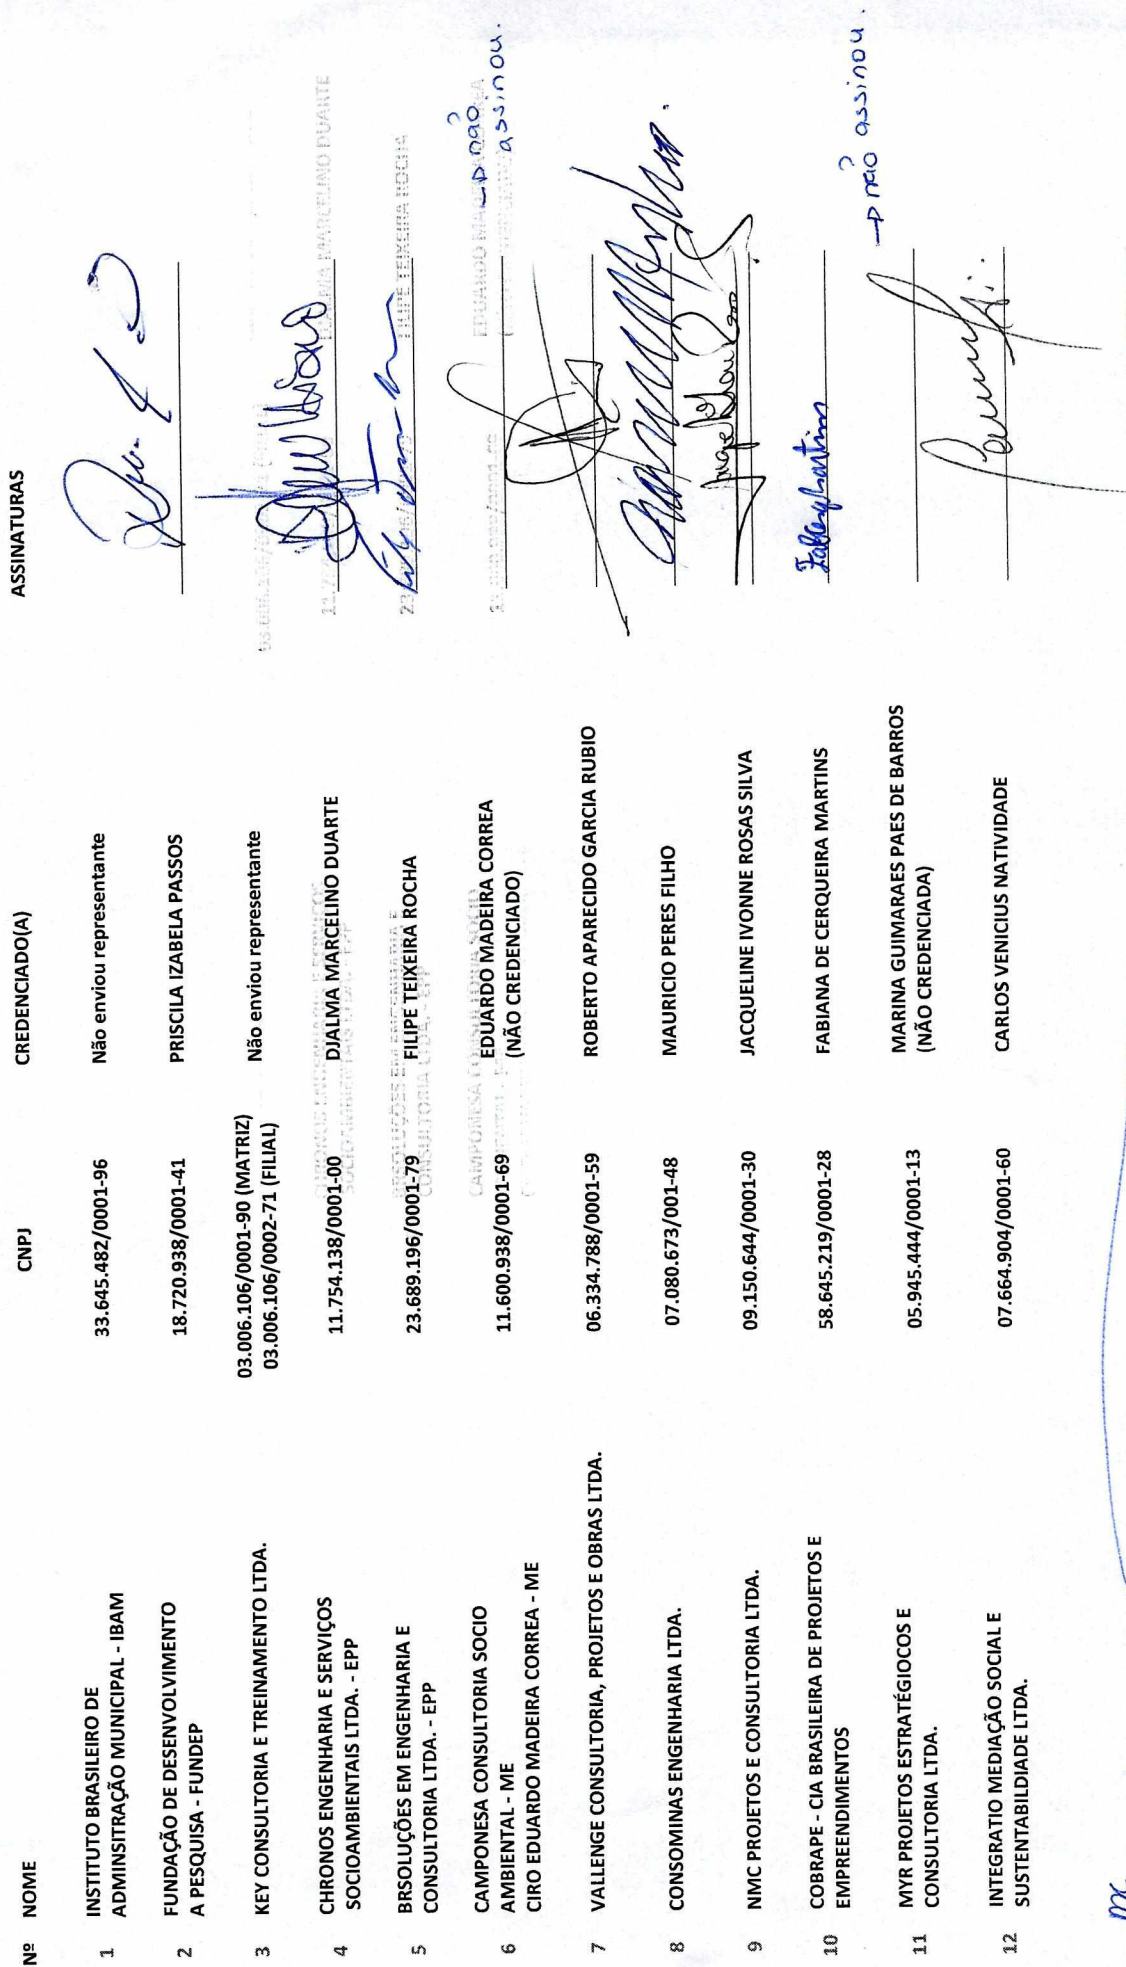 Nº NOME CNPJ CREDENCIADO(A) ASSINATURAS
1 INSTITUTO BRASILEIRO DE
ADMINSITRAÇÃO MUNICIPAL - IBAM 33.645.482/0001-96 Não enviou representante
2 FUNDAÇÃO DE DESENVOLVIMENTO
A PESQUISA - FUNDEP 18.720.938/0001-41 PRISCILA IZABELA PASSOS
3 KEY CONSULTORIA E TREINAMENTO LTDA. 03.006.106/0001-90 (MATRIZ) Não enviou representante
03.006.106/0002-71 (FILIAL)
4 CHRONOS ENGENHARIA E SERVIÇOS
SOCIOAMBIENTAIS LTDA. - EPP 11.754.138/0001-00 DJALMA MARCELINO DUARTE
5 BRSOLUÇÕES EM ENGENHARIA E
CONSULTORIA LTDA. - EPP 23.689.196/0001-79 FILIPE TEIXEIRA ROCHA
6 CAMPONESA CONSULTORIA SOCIO
AMBIENTAL - ME
CIRO EDUARDO MADEIRA CORREA - ME 11.600.938/0001-69 EDUARDO MADEIRA CORREA
(NÃO CREDENCIADO) não
assinou.
7 VALLENGE CONSULTORIA, PROJETOS E OBRAS LTDA. 06.334.788/0001-59 ROBERTO APARECIDO GARCIA RUBIO
8 CONSOMINAS ENGENHARIA LTDA. 07.080.673/001-48 MAURICIO PERES FILHO
9 NMC PROJETOS E CONSULTORIA LTDA. 09.150.644/0001-30 JACQUELINE IVONNE ROSAS SILVA
10 COBRAPE - CIA BRASILEIRA DE PROJETOS E
EMPREENDIMENTOS 58.645.219/0001-28 FABIANA DE CERQUEIRA MARTINS
11 MYR PROJETOS ESTRATÉGIOCOS E
CONSULTORIA LTDA. 05.945.444/0001-13 MARINA GUIMARAES PAES DE BARROS
(NÃO CREDENCIADA) não assinou.
12 INTEGRATIO MEDIAÇÃO SOCIAL E
SUSTENTABILDIADE LTDA. 07.664.904/0001-60 CARLOS VENICIUS NATIVIDADE